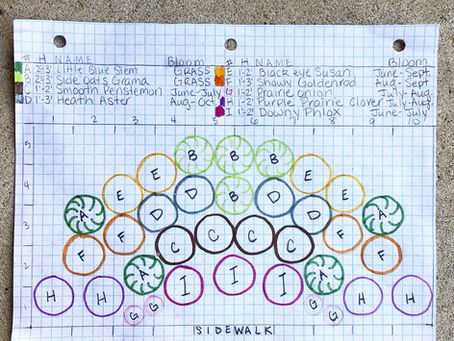 # H NAME Bloom # H NAME Bloom
A 2-3' Little Blue Stem GRASS E 1-2' Black eye Susan June-Sept.
B 2-3' Side Oats Grama GRASS F 1-3' Showy Goldenrod Aug-Sept.
C 1-2' Smooth Penstemon June-July G 1-2' Prairie onion July-Aug.
D 1-3' Heath Aster Aug-Oct H 1-2' Purple Prairie Clover July-Aug.
I 1-2' Downy Phlox June-July
1 2 3 4 5 6 7 8 9 10
5 B B B
E E
4 E D B D E E
A D D A
3 F F C C C C F F
2 A I I I A
H H H H
1 G G G G
SIDEWALK